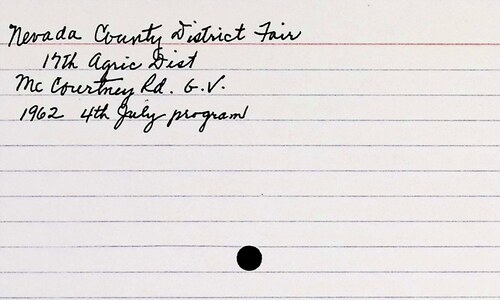 Nevada County District Fair
17th Agric Dist
McCourtney Rd. G.V.
1962 4th July program